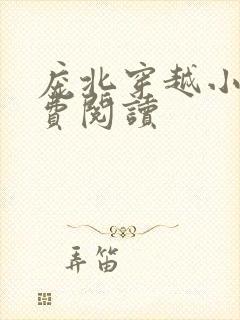 庇北穿越小
費閱讀
弄笛